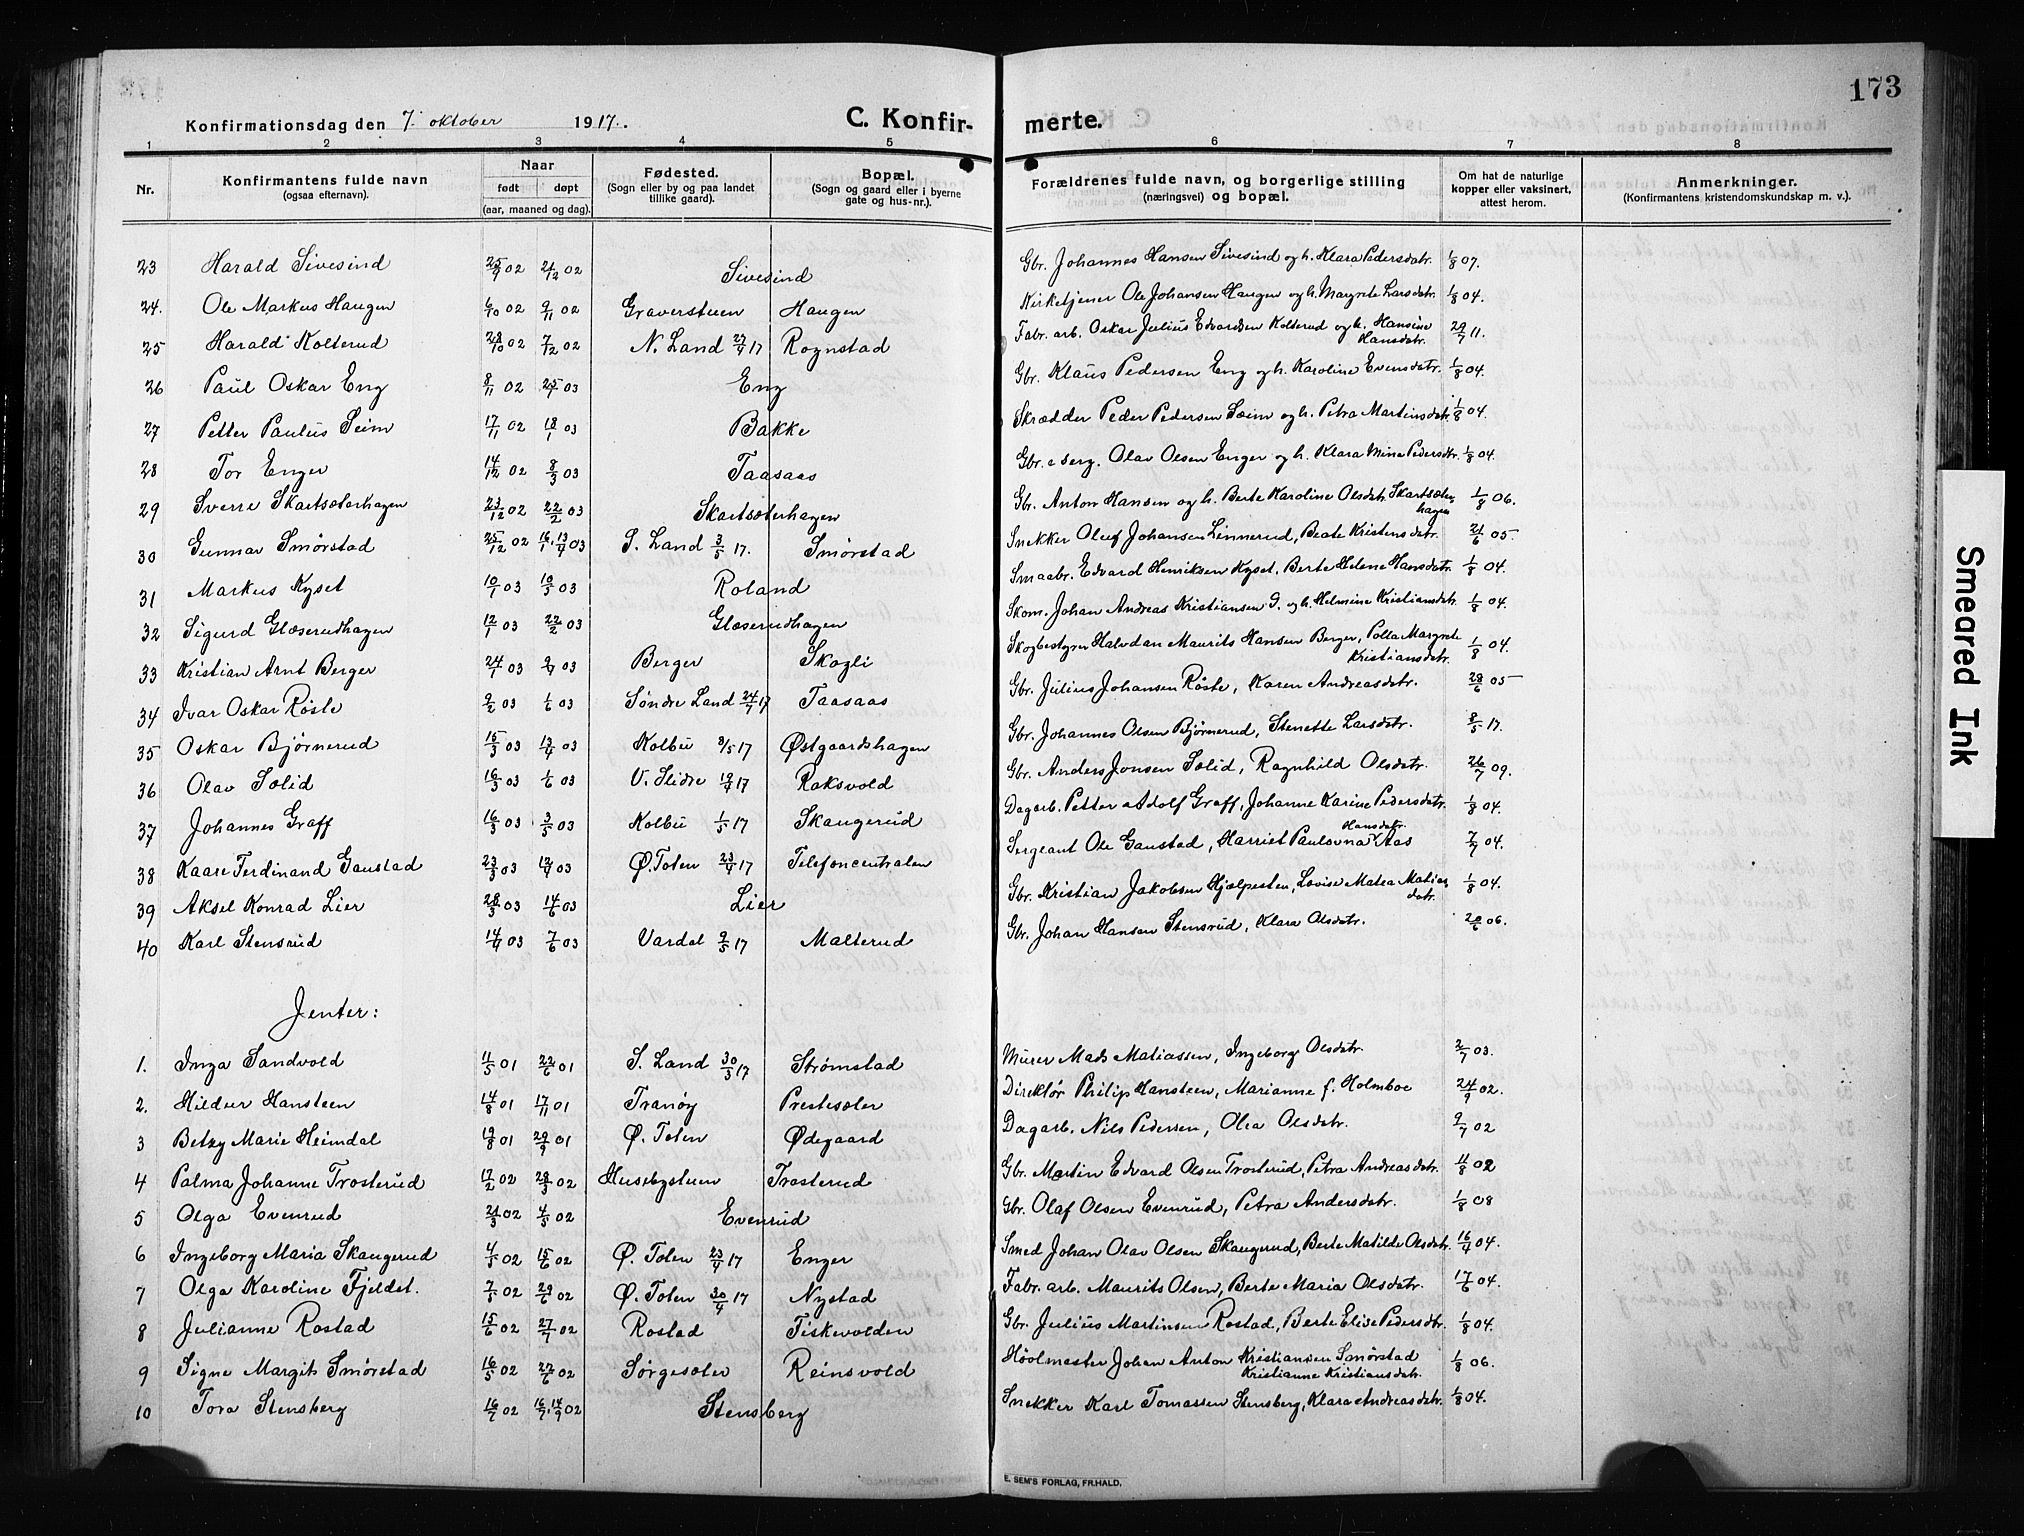 173
Konfirmationsdag den 7. oktober 1917.
C. Konfirmerte.
1 2 3 4 5 6 7 8
Nr.
Konfirmantens fulde navn (ogsaa efternavn).
Naar født døpt (aar, maaned og dag).
Fødested. (Sogn eller by og paa landet tillike gaard).
Bopæl. (Sogn og gaard eller i byerne gate og hus-nr.).
Forældrenes fulde navn, og borgerlige stilling (næringsvei) og bopæl.
Om hat de naturlige kopper eller vaksinert, attest herom.
Anmerkninger. (Konfirmantens kristendomskundskap m. v.).
23 Harald Sivesind 25/9 02 21/12 02 Sivesind Gbr. Johannes Hansen Sivesind og h. Klara Pedersdatr. 1/8 07.
24. Ole Markus Haugen 6/10 02 9/11 02 Graversteen Haugen Kirketjener Ole Johansen Haugen og h. Margrete Larsdatr. 1/8 04.
25 Harald Kolterud 28/10 02 7/12 02 N. Land 27/4 17 Rognstad Fabr. arb. Oskar Julius Edvardsen Kolterud og h. Hansine Hansdatr. 29/7 11.
26 Paul Oskar Eng 8/11 02 25/1 03 Eng Gbr. Klaus Pedersen Eng og h. Karoline Evensdatr. 1/8 04.
27 Petter Paulus Seim 17/11 02 18/1 03 Bakke Skrædder Peder Pedersen Seim og h. Petra Martinsdatr. 1/8 04.
28 Tor Enger 14/12 02 8/3 03 Taasaas Gbr. e serg. Olav Olsen Enger og h. Klara Mina Pedersdtr. 1/8 04.
29 Sverre Skartsæterhagen 23/12 02 22/2 03 Skartsæterhagen Gbr. Anton Hansen og h. Berte Karoline Olsdatr. Skartsæterhagen 1/8 06.
30 Gunnar Smørstad 25/12 02 16/1, 13/4 03 S. Land 3/5 17. Smørstad Snekker Oluf Johansen Linnerud, Beate Kristensdatr. 21/6 05
31 Markus Kyset 10/1 03 10/5 03 Roland Smaabr. Edvard Henriksen Kyset, Berte Helene Hansdatr. 1/8 04.
32 Sigurd Glæserudhagen 12/1 03 22/2 03 Glæserudhagen Skom. Johan Andreas Kristiansen G. og h. Helmine Kristiansdatr. 1/8 04.
33 Kristian Arnt Berger 24/1 03 03 Berger Skogli Skogbestyrer Halvdan Maurits Hansen Berger, Polla Margrete Kristiansdatr. 1/8 04.
34 Ivar Oskar Røste 9/2 03 1/6 03 Søndre Land 24/7 17 Taasaas Gbr. Julius Johansen Røste, Karen Andreasdatr. 28/6 05
35 Oskar Bjørnerud 15/3 03 13/4 03 Kolbu 8/5 17 Østgaardshagen Gbr. Johannes Olsen Bjørnerud, Stenette Larsdatr. 8/5 17.
36 Olav Solid 16/3 03 1/6 03 V. Slidre 19/4 17 Raksvold Gbr. Anders Jonsen Solid, Ragnhild Olsdatr. 26/7 09.
37 Johannes Graff 16/3 03 3/5 03 Kolbu 1/5 17 Skaugerud Dagarb. Petter Adolf Graff, Johanne Karine Pedersdatr. 1/8 04.
38 Kaare Ferdinand Ganstad 23/3 03 12/4 03 Ø. Toten 23/4 17 Telefoncentralen Sergeant Ole Ganstad, Harriet Paulovna Hansdatr. Aas 7/7 04.
39 Aksel Konrad Lier 28/3 03 14/6 03 Lier Gbr. Kristian Jakobsen Hjælpesten, Lovise Matea Matiasdatr. 1/8 04.
40 Karl Stensrud 14/4 03 7/6 03 Vardal 9/5 17 Malterud Gbr. Johan Hansen Stensrud, Klara Olsdatr. 20/6 06.
Jenter:
1. Inga Sandvold 11/5 01 22/6 01 S. Land 30/3 17 Strømstad Murer Mads Matiassen, Ingeborg Olsdatr. 2/7 03.
2. Hildur Hansteen 14/8 01 17/11 01 Tranøy Prestesæter Direktør Philip Hansteen, Marianne f. Holmboe 24/9 02.
3 Betzy Marie Heimdal 19/8 01 29/9 01 Ø. Toten Ødegaard Dagarb. Nils Pedersen, Olea Olsdatr. 9/7 02
4 Palma Johanne Trosterud 12/2 02 23/3 02 Husebysteen Trosterud Gbr. Martin Edvard Olsen Trosterud, Petra Andreasdatr. 11/8 02
5 Olga Evenrud 21/3 02 4/5 02 Evenrud Gbr. Olaf Olsen Evenrud, Petra Andersdatr. 1/8 08
6 Ingeborg Maria Skaugerud 4/5 02 15/6 02 Ø. Toten 23/4 17 Enger Smed Johan Olav Olsen Skaugerud, Berte Matilde Olsdatr. 16/4 04.
7 Olga Karoline Fjeldet. 7/5 02 29/6 02 Ø. Toten 30/4 17 Nystad Fabr. arb. Maurits Olsen, Berte Maria Olsdatr. 17/6 04.
8 Julianne Rostad 15/6 02 27/7 02 Rostad Fiskevolden Gbr. Julius Martinsen Rostad, Berte Elise Pedersdtr. 1/8 04.
9 Signe Margit Smørstad 16/5 02 22/6 02 Sørgesæter Reinsvold Høolmester Johan Anton Kristiansen Smørstad Kristianne Kristiansdatr. 1/8 06.
10 Tora Stensberg 16/7 02 16/7, 14/9 02 Stensberg Snekker Karl Tomassen Stensberg, Klara Andreasdatr. 1/8 04.
E. SEM'S FORLAG, FR.HALD.
Smeared Ink